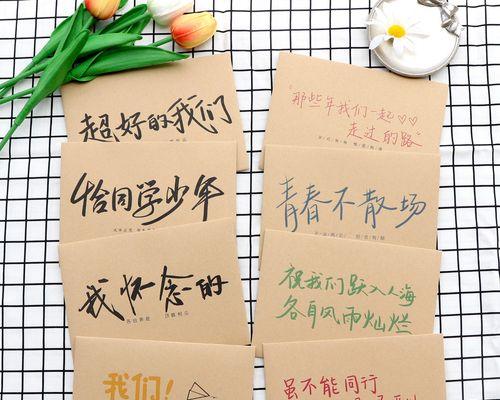 超好的我们
恰同学少年
我怀念的
我们!
"那些年我们一起♡♡
走过的路"
青春不散场
祝我们跃入人海
各自风雨灿烂
虽不能同行